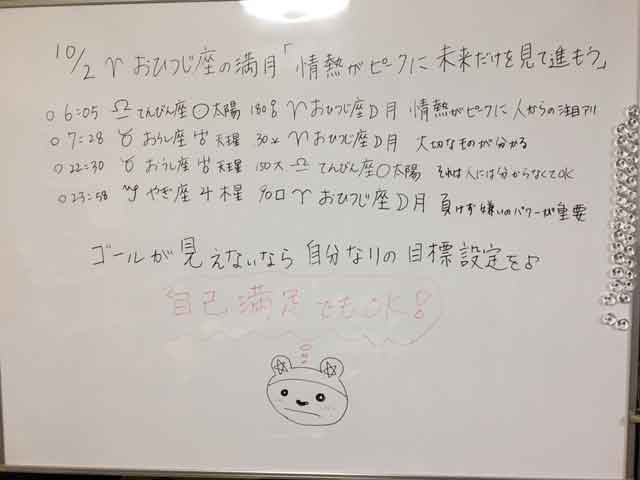 10/2 ♈ おひつじ座の満月「情熱がピークに 未来だけを見て進もう」
○ 6:05 ♎ てんびん座 〇 太陽 180 ☍ ♈ おひつじ座 D 月 情熱がピークに 人からの注目アリ
○ 7:28 ♉ おうし座 ♅ 天王星 30 ⚺ ♈ おひつじ座 D 月 大切なものが分かる
○ 22:30 ♉ おうし座 ♅ 天王星 150 ⚻ ♎ てんびん座 〇 太陽 それは人には分からなくてOK
○ 23:58 ♑ やぎ座 ♃ 木星 90 □ ♈ おひつじ座 D 月 負けず嫌いのパワーが重要
ゴールが見えないなら 自分なりの 目標設定を♪
自己満足でもOK!